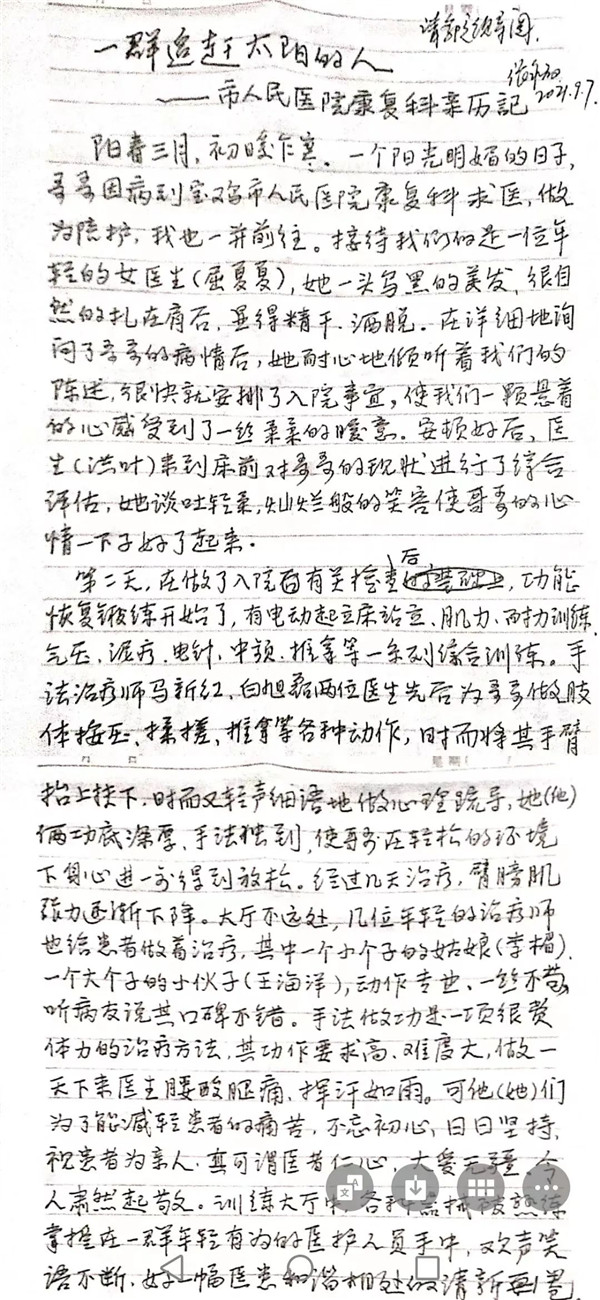 请郭主任审阅.
一群追赶太阳的人
张永加
2021.9.7.
——市人民医院康复科亲历記
阳春三月,初暖乍寒。一个阳光明媚的日子,
哥哥因病到宝鸡市人民医院康复科求医,做
为陪护,我也一并前往。接待我们的是一位年
轻的女医生(屈夏夏),她一头乌黑的美发,很自
然的扎在肩后,显得精干、洒脱。在详细地询
问了哥哥的病情后,她耐心地倾听着我们的
陈述,很快就安排了入院事宜,使我们一颗悬着
的心感受到了一丝柔柔的暖意。安顿好后,医
生(洪叶)来到床前对哥哥的现状进行了综合
评估,她谈吐轻柔,灿烂般的笑容使哥哥的心
情一下子好了起来.
第二天,在做了入院有关检查后,功能
恢复锻练开始了,有电动起立床站立、肌力、耐力训练、
气压、泥疗、电针、中频、推拿等一系列综合训练。手
法治疗师马新红、白旭磊两位医生先后为哥哥做肢
体按压、揉搓、推拿等各种动作,时而将其手臂
抬上挟下,时而又轻声细语地做心理疏导,她(他)
俩功底深厚、手法独到,使哥哥在轻松的环境
下身心进一步得到放松。经过几天治疗,臂膀肌
张力逐渐下降。大厅不远处,几位年轻的治疗师
也给患者做着治疗,其中一个小个子的姑娘(李楣)、
一个大个子的小伙子(王海洋),动作专业、一丝不苟,
听病友说其口碑不错。手法做功是一项很费
体力的治疗方法,其功作要求高、难度大,做一
天下来医生腰酸腿痛、挥汗如雨。可他(她)们
为了能减轻患者的痛苦,不忘初心,日日坚持,
视患者为亲人,真可谓医者仁心,大爱无疆,令
人肃然起敬。训练大厅中,各种器械被熟练
掌握在一群年轻有为的医护人员手中,欢声笑
语不断,好一幅医患和谐相处的清新画卷